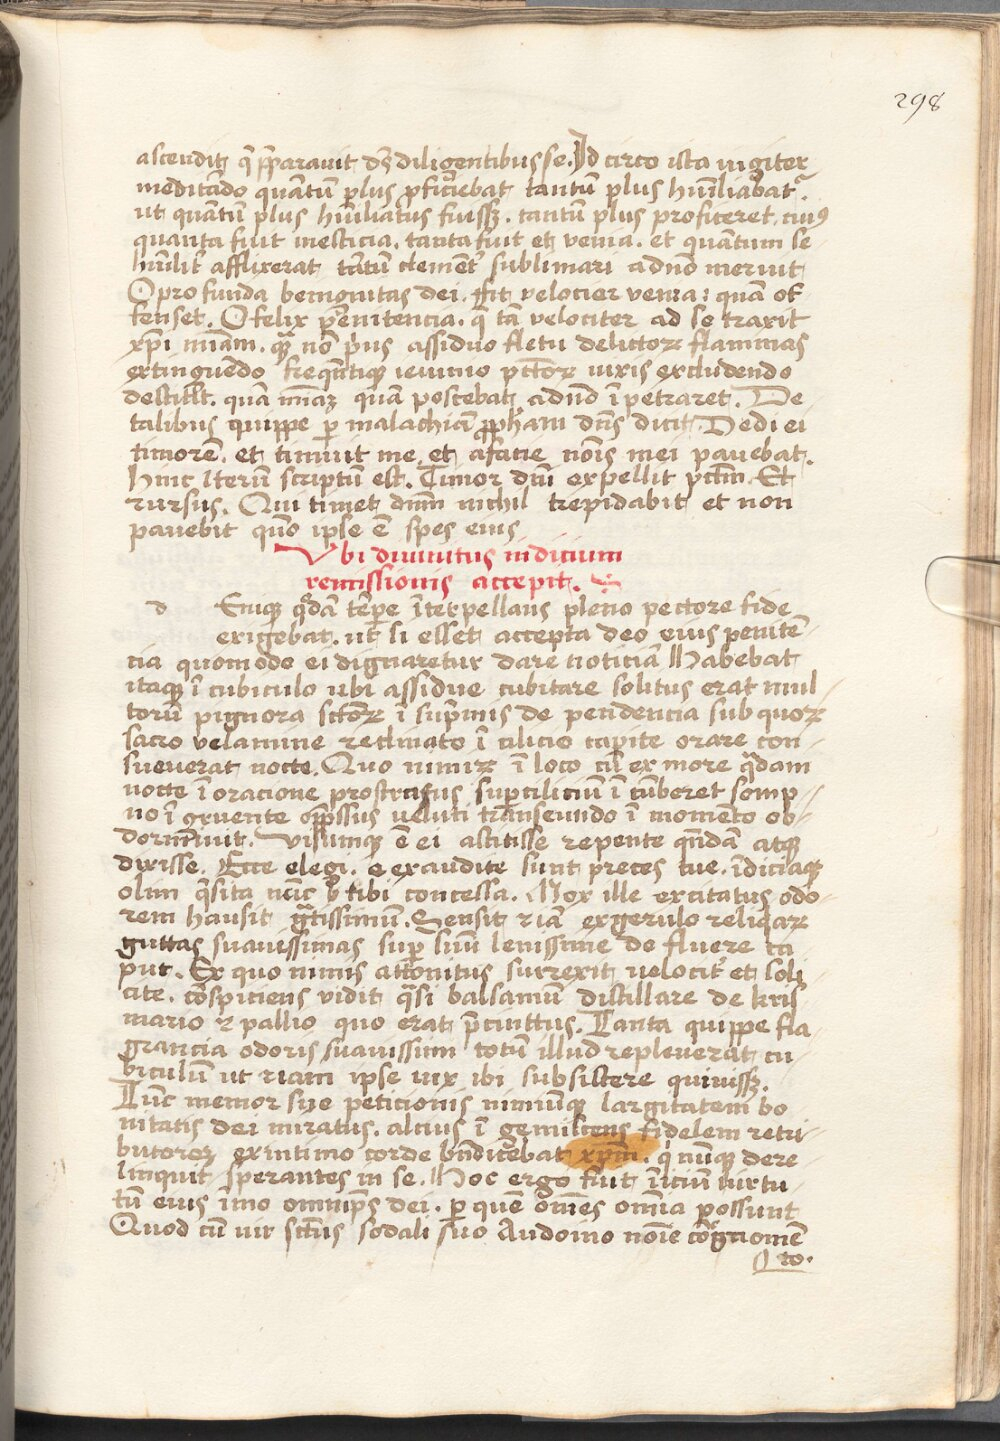 298
ascendit q̄ p̄parauit dꝫ diligentibus se. Id circo ista iugiter
meditādo quātū plus proficiebat tantū plus humiliabatᷣ
ut quātū plus hūiliatus fuissꝫ. tantū plus proficeret. cuiꝯ
quanta fuit mesticia. tanta fuit et venia. et quantum se
hūilitᷣ afflixerat tātū clementᷣ sublimari a dn̄o meruit
O profunda benignitas dei. fit velocior venia: quā of
fenset. O felix penitencia. q̄ tā velociter ad se traxit
xp̄i mīam. qꝫ nō prius assiduo fletu delictoꝝ flammas
extinguēdo freq̄ntiqꝫ ieiunio pctoꝝ uiris excludendo
destitit. quā mīaꝫ quā poscebat a dn̄o īpetraret. De
talibus quippe per malachiā ꝓpham dn̄s dicit. Dedi ei
timorē. et timuit me et a facie nōis mei pauebat.
hinc Iterū scriptū est. Timor dn̄i expellit pctm̄. Et
rursus. Qui timet dn̄m nichil trepidabit et non
pauebit quō ipse ē spes eius
Vbi diuinitus indicium
remissionis accepit.
d Enique q̄dā tēpore īterpellans pleno pectore fide
exigebat. ut si esset accepta deo eius penitē
cia quomodo ei dignaretur dare noticiā Habebat
itaqꝫ ī cubiculo ubi assidue cubitare solitus erat mul
torū pignora sctoꝝ ī supremis de pendencia sub quoꝝ
sacro velamine reclinato ī cilicio capite orare con
sueuerat nocte. Quo nimiꝝ ī loco cū ex more q̄dam
nocte ī oracione prostratus super cilicium ī cūberet somp
no ī gruente oppressus veluti transeundo ī momēto ob
dormiuit. Visumqꝫ ē ei astitisse repente quendā atqꝫ
dixisse. Ecce elegi. exaudite sunt preces tue. īdiciaqꝫ
olim q̄sita nūc tibi concessa. Mox ille excitatus odo
rem hausit gratissimū. Sensit etiā ex gerulo reliqiaꝝ
guttas suauissimas super suū lenissime de fluere ca
put. Ex quo nimis attonitus surrexit velocitᷣ et soli
cite. cōspiciens vidit q̄si balsamū distillare de kris
mario et pallio quo erat p̄cinttus. Tanta quippe fra
grancia odoris suauissimi totū illud repleuerat cu
biculū ut etiam ipse uix ibi subsistere quiuissꝫ.
Tūc memor sue peticionis nimiūqꝫ largitatem bo
nitatis dei miratus. alcius ī gemiscens fidelem retri
butoreꝫ ex intimo corde bn̄dicebat xp̄m. q̄ nūqꝫ dere
linquit sperantes in se. Hoc ergo fuit īiciū uirtu
tū eius īmo omnip̄s dei. per quē omēs omīa possunt
Quod cū uir sctūs sodali suo Audoino nōie cōgnomē
to.